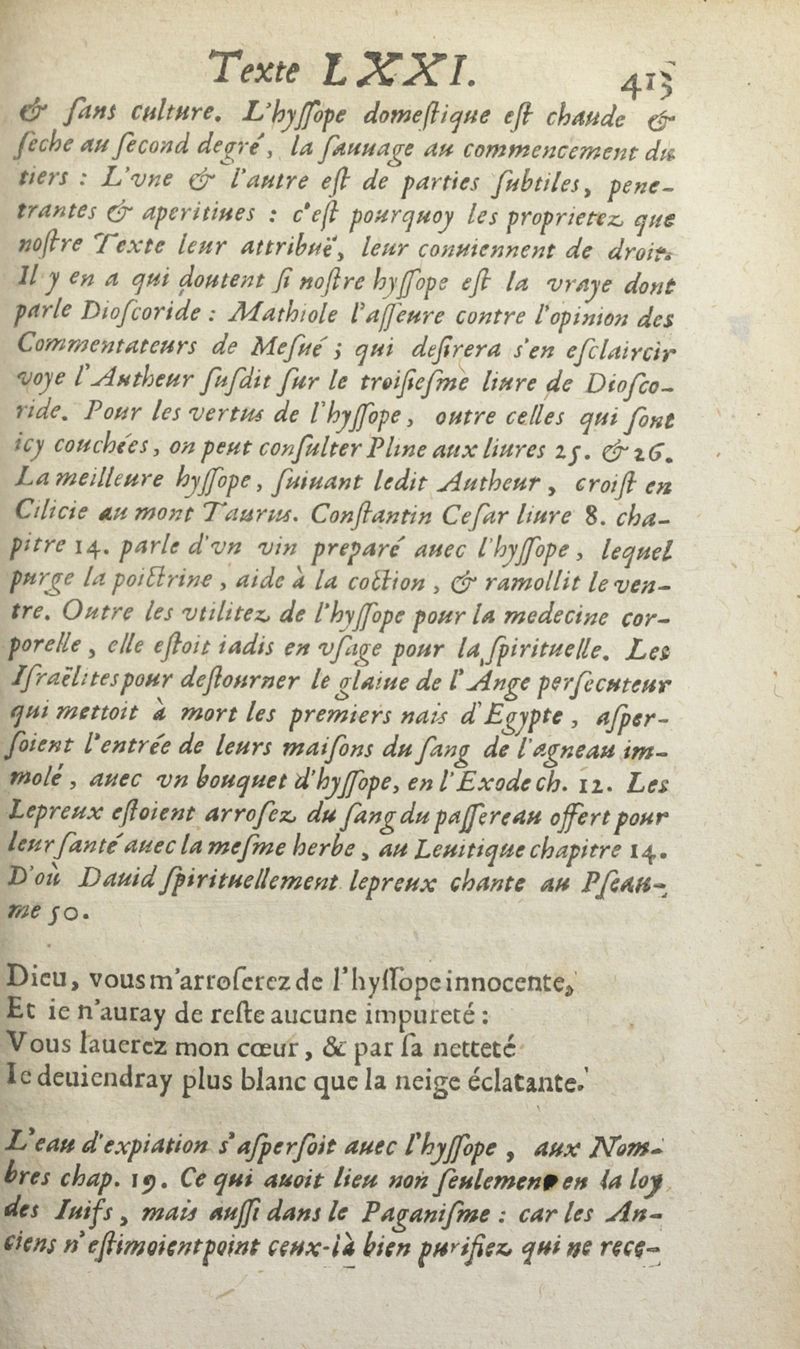 Texte LXXI. 413
& ſans culture. L'hyſſope domeſtique eſt chaude &
ſeche au ſecond degré, la ſauuage au commencement du
tiers : L'vne & l'autre eſt de parties ſubtiles, pene-
trantes & aperitiues : c'eſt pourquoy les proprietez que
noſtre Texte leur attribuë, leur conuiennent de droit.
Il y en a qui doutent ſi noſtre hyſſope eſt la vraye dont
parle Dioſcoride : Mathiole l'aſſeure contre l'opinion des
Commentateurs de Meſué ; qui deſirera s'en eſclaircir
voye l'Autheur ſuſdit ſur le troiſieſme liure de Dioſco-
ride. Pour les vertus de l'hyſſope, outre celles qui ſont
icy couchées, on peut conſulter Pline aux liures 25. & 26.
La meilleure hyſſope, ſuiuant ledit Autheur, croiſt en
Cilicie au mont Taurus. Conſtantin Ceſar liure 8. cha-
pitre 14. parle d'vn vin preparé auec l'hyſſope, lequel
purge la poictrine, aide à la coction, & ramollit le ven-
tre. Outre les vtilitez de l'hyſſope pour la medecine cor-
porelle, elle eſtoit iadis en vſage pour la ſpirituelle. Les
Iſraëlites pour deſtourner le glaiue de l'Ange perſecuteur
qui mettoit à mort les premiers nais d'Egypte, aſper-
ſoient l'entrée de leurs maiſons du ſang de l'agneau im-
molé, auec vn bouquet d'hyſſope, en l'Exode ch. 12. Les
Lepreux eſtoient arroſez du ſang du paſſereau offert pour
leur ſanté auec la meſme herbe, au Leuitique chapitre 14.
D'où Dauid ſpirituellement lepreux chante au Pſeau-
me 50.
Dieu, vous m'arroſerez de l'hyſſope innocente,
Et ie n'auray de reſte aucune impureté :
Vous lauerez mon cœur, & par ſa netteté
Ie deuiendray plus blanc que la neige éclatante.
L'eau d'expiation s'aſperſoit auec l'hyſſope, aux Nom-
bres chap. 19. Ce qui auoit lieu non ſeulement en la loy
des Iuifs, mais auſſi dans le Paganiſme : car les An-
ciens n'eſtimoient point ceux-là bien purifiez qui ne rece-